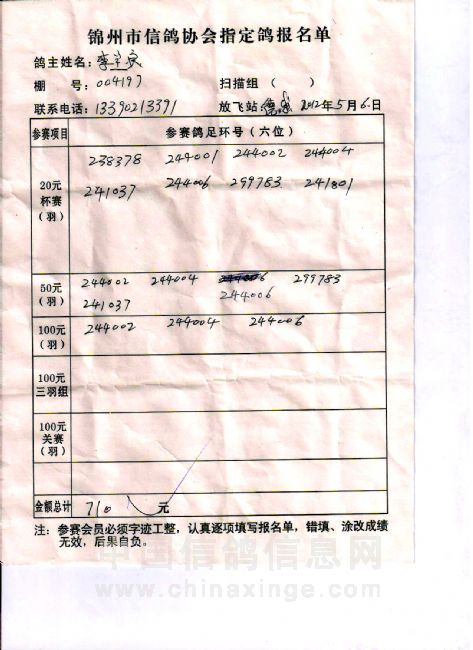 锦州市信鸽协会指定鸽报名单
鸽主姓名：李
棚 号：004197 扫描组（ ）
联系电话：13390213391 放飞站： 2012年5月6日
参赛项目 参赛鸽足环号（六位）
20元杯赛（羽） 238378 244001 244002 244004
241037 244006 299783 241801
50元（羽） 244002 244004 299783
241037 244006
100元（羽） 244002 244004 244006
100元三羽组
100元关赛（羽）
金额总计 710 元
注：参赛会员必须字迹工整，认真逐项填写报名单，错填、涂改成绩
无效，后果自负。
中国信鸽信息网
www.chinaxinge.com